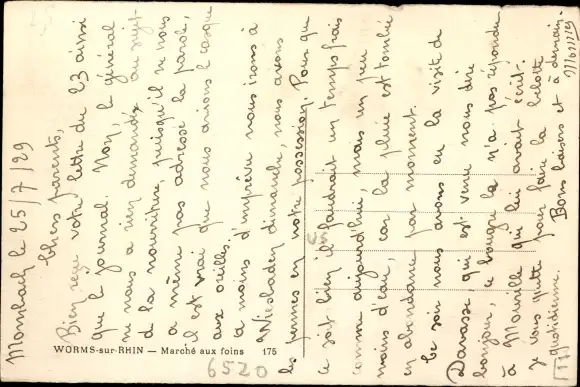 Mombach le 25/7/29
Chers parents,
Bien reçu votre lettre du 23 ainsi
que le journal. Non, le général
ne nous a rien demandé au sujet
de la nourriture, puisqu'il ne nous
a même pas adressé la parole,
il est vrai que nous avions casque
aux oreilles.
à moins d'imprévu nous irons à
Wiesbaden dimanche, nous avons
les permes en notre possession. Pour que
ce soit bien il faudrait un temps frais
comme aujourd'hui, mais un peu
moins d'eau, car la pluie est tombée
en abondance par moment.
Ce soir nous avons eu la visite de
Davasse, qui est venu nous dire
bonjour, ce bougre là n'a pas répondu
à Merville qui lui avait écrit.
Je vous quitte pour faire la belotte
quotidienne. Bons baisers et à demain.
WORMS-sur-RHIN — Marché aux foins 175
6520